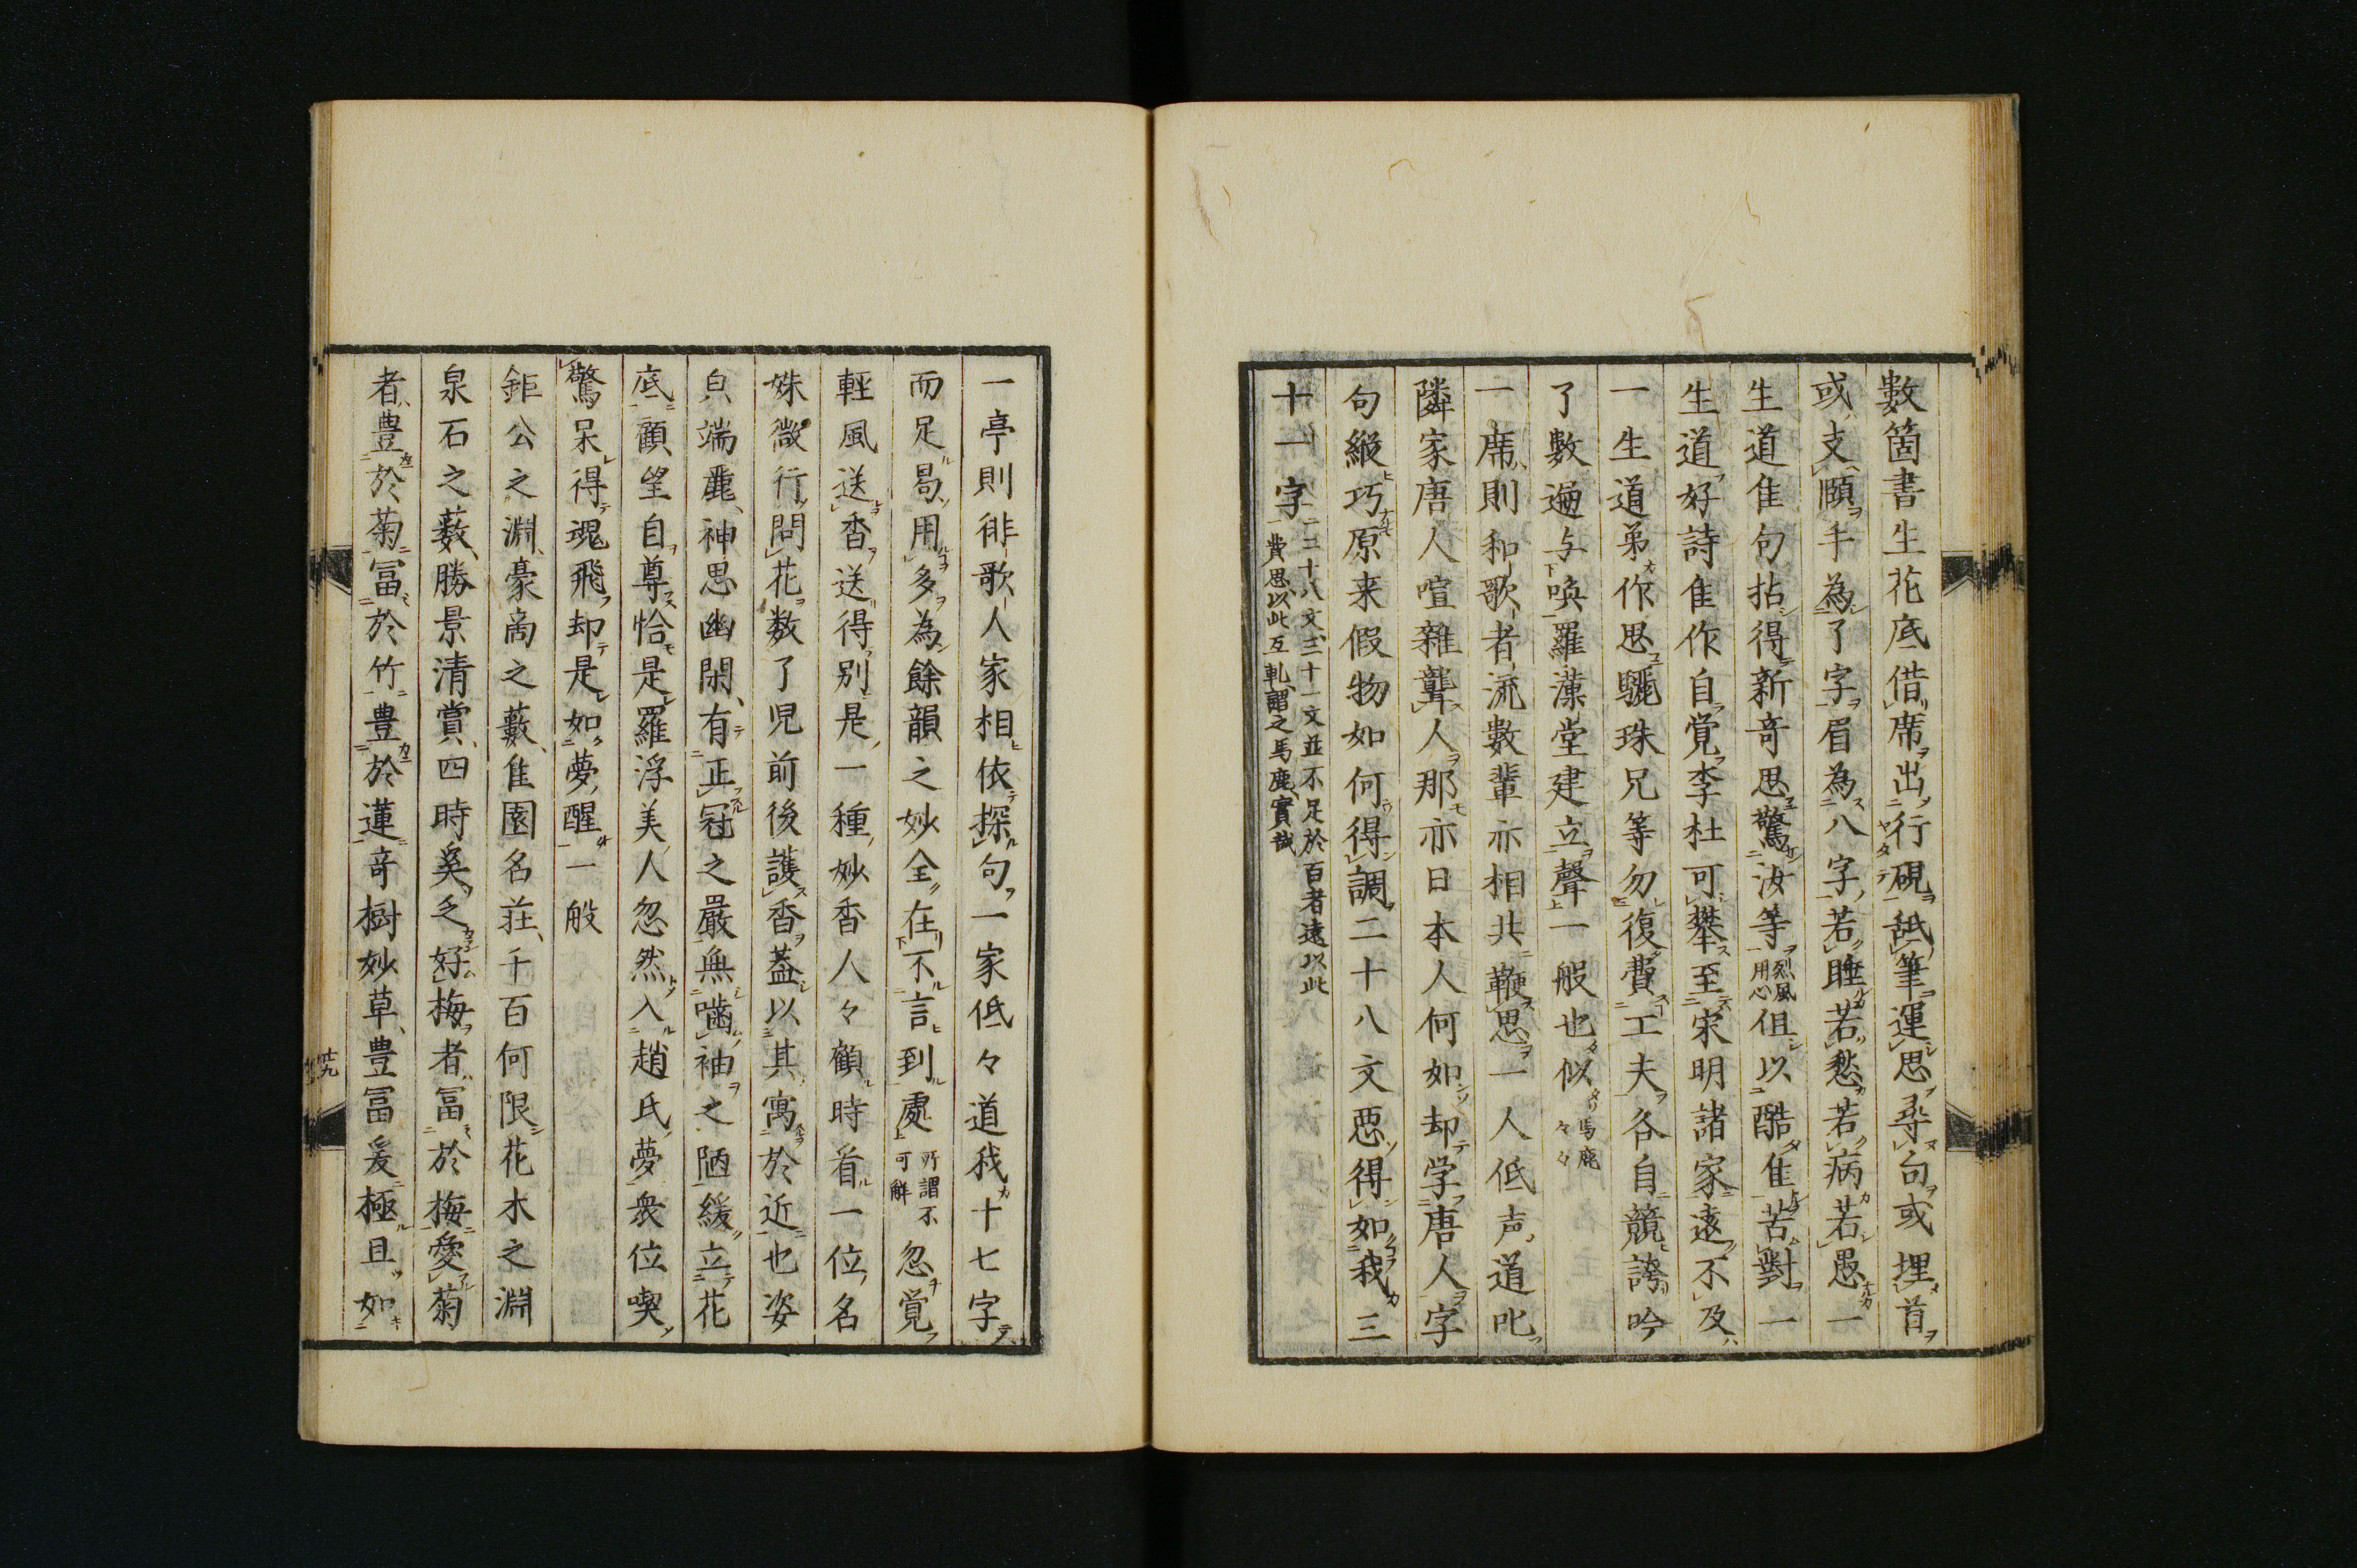 數箇書生花底借席出行硯舐筆運思尋句或埋首
或支頤手為了字眉為八字若睡若愁若病若愚一
生道隹句拈得新奇思驚汝等烈風用心伹以酷隹苦對一
生道好詩隹作自覚李杜可攀至宋明諸家遠不及
一生道弟作思驪珠兄等勿復費工夫各自競誇吟
了數遍与喚羅漢堂建立聲一般也似馬鹿々々
一席則和歌者流數輩亦相共鞭思一人低声道叱
隣家唐人喧雜聾人那亦日本人何如却学唐人字
句縦巧原来假物如何得調二十八文悪得如我三
十一字一二十八文三十一文並不足於百者遠以此費思以此互軋謂之馬鹿實哉
一亭則徘歌人家相依探句一家低々道我十七字
而足曷用多為餘韻之妙全在不言到處所謂不可解忽覚
輕風送香送得別是一種妙香人々顧時看一位名
姝微行問花数了児前後護香葢以其寓於近也姿
㒵端麗神思幽閑有正冠之嚴無嚙袖之陋緩立花
底顧望自尊恰是羅浮美人忽然入趙氏夢衆位喫
驚呆得魂飛却是如夢醒一般
鉅公之淵豪商之藪隹園名莊千百何限花木之淵
泉石之薮勝景清賞四時奚乏好梅者冨於梅愛菊
者豊於菊冨於竹豊於蓮竒樹妙草豊冨爰極且如
十九